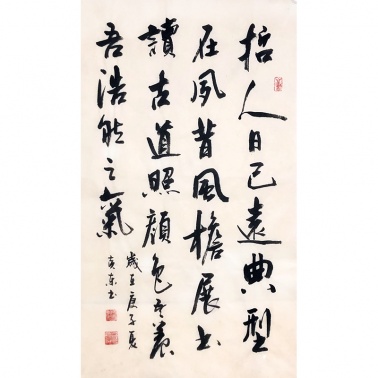 哲人日已遠典型
在夙昔風檐展书
讀古道照顔色善養
吾浩然之氣
歲在庚子夏
书